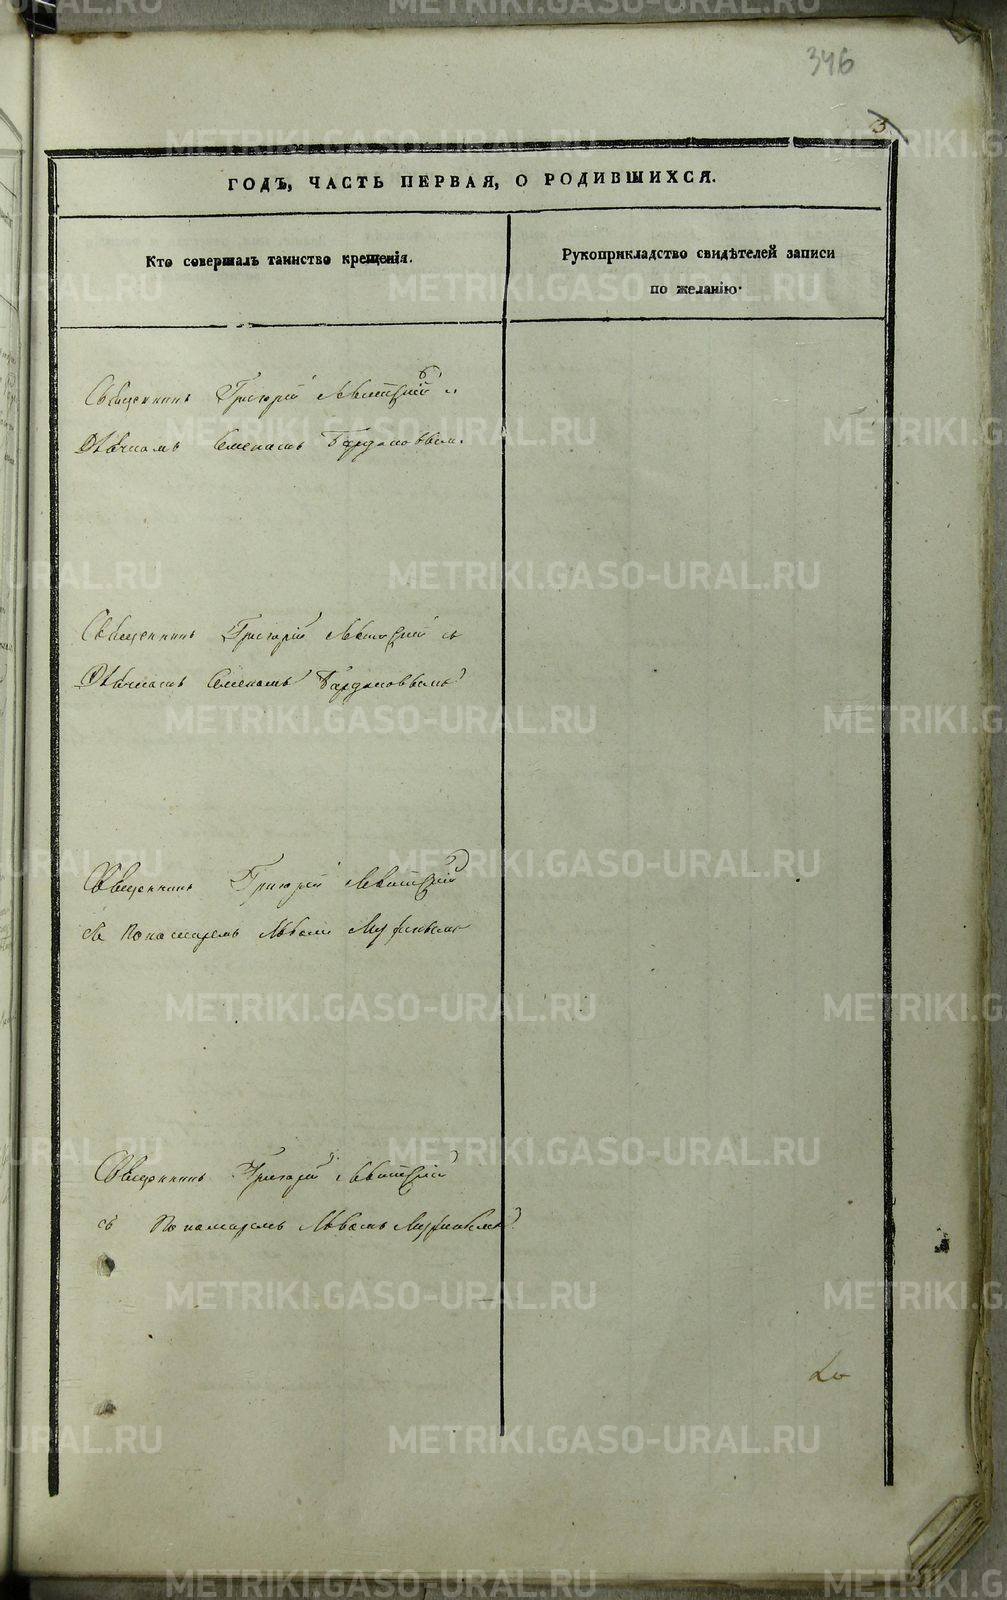 346
3
ГОДЪ, ЧАСТЬ ПЕРВАЯ, О РОДИВШИХСЯ.
Кто совершалъ таинство крещенія.
Рукоприкладство свидѣтелей записи
по желанію.
Священникъ Григорій Левитскій
Дьячкомъ Семеномъ
Священникъ Григорій Левитскій съ
Дьячкомъ Семеномъ
Священникъ Григорій Левитскій
съ Пономаремъ Львомъ
Священникъ Григорій Левитскій
съ Пономаремъ Львомъ
METRIKI.GASO-URAL.RU